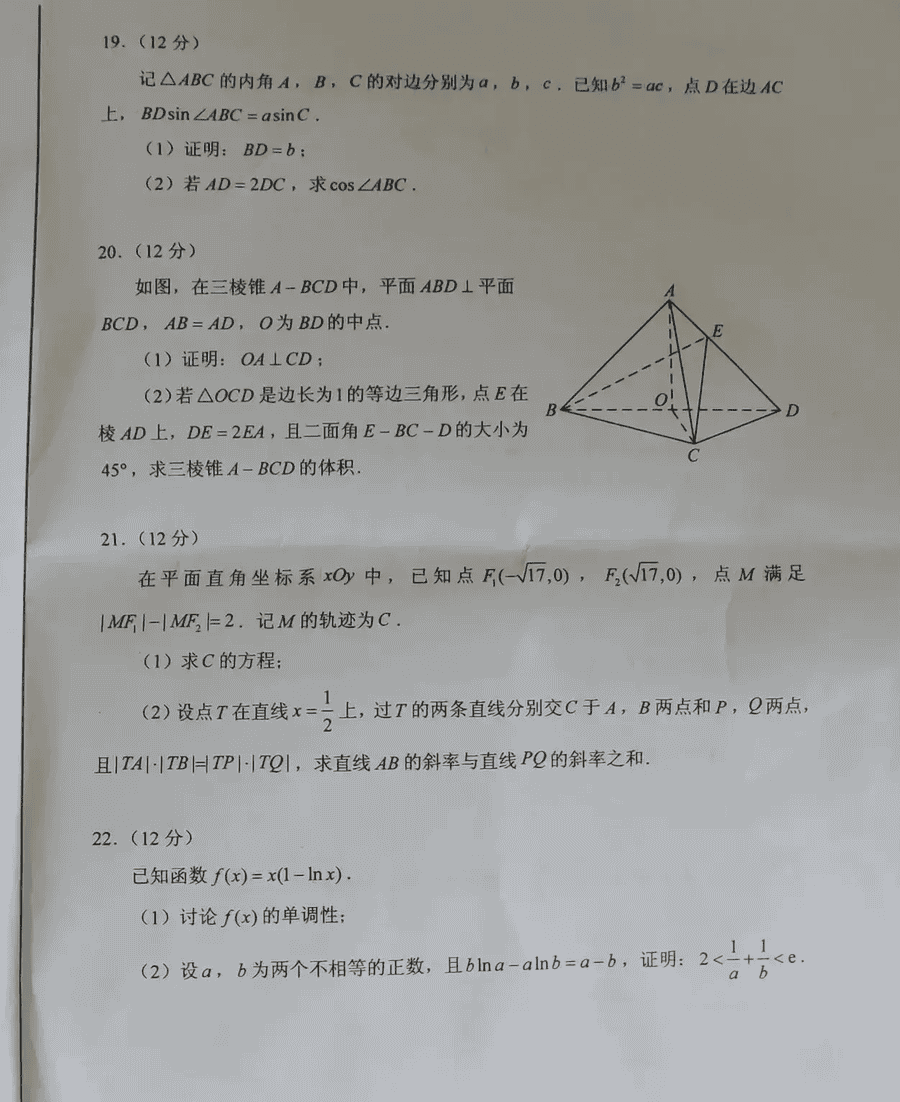 19.（12 分）
记△ABC 的内角 A，B，C 的对边分别为 a，b，c．已知 b² = ac，点 D 在边 AC
上，BD sin∠ABC = a sin C．
（1）证明：BD = b；
（2）若 AD = 2DC，求 cos∠ABC．
20.（12 分）
如图，在三棱锥 A－BCD 中，平面 ABD⊥平面
BCD，AB = AD，O 为 BD 的中点．
（1）证明：OA⊥CD；
（2）若△OCD 是边长为1的等边三角形，点 E 在
棱 AD 上，DE = 2EA，且二面角 E－BC－D 的大小为
45°，求三棱锥 A－BCD 的体积．
A
E
B
O
D
C
21.（12 分）
在平面直角坐标系 xOy 中，已知点 F₁(−√17,0)，F₂(√17,0)，点 M 满足
|MF₁|−|MF₂|=2．记 M 的轨迹为 C．
（1）求 C 的方程；
（2）设点 T 在直线 x = 1/2 上，过 T 的两条直线分别交 C 于 A，B 两点和 P，Q 两点，
且|TA|·|TB|=|TP|·|TQ|，求直线 AB 的斜率与直线 PQ 的斜率之和．
22.（12 分）
已知函数 f(x) = x(1−ln x)．
（1）讨论 f(x) 的单调性；
（2）设 a，b 为两个不相等的正数，且 b ln a − a ln b = a − b，证明：2 < 1/a + 1/b < e．